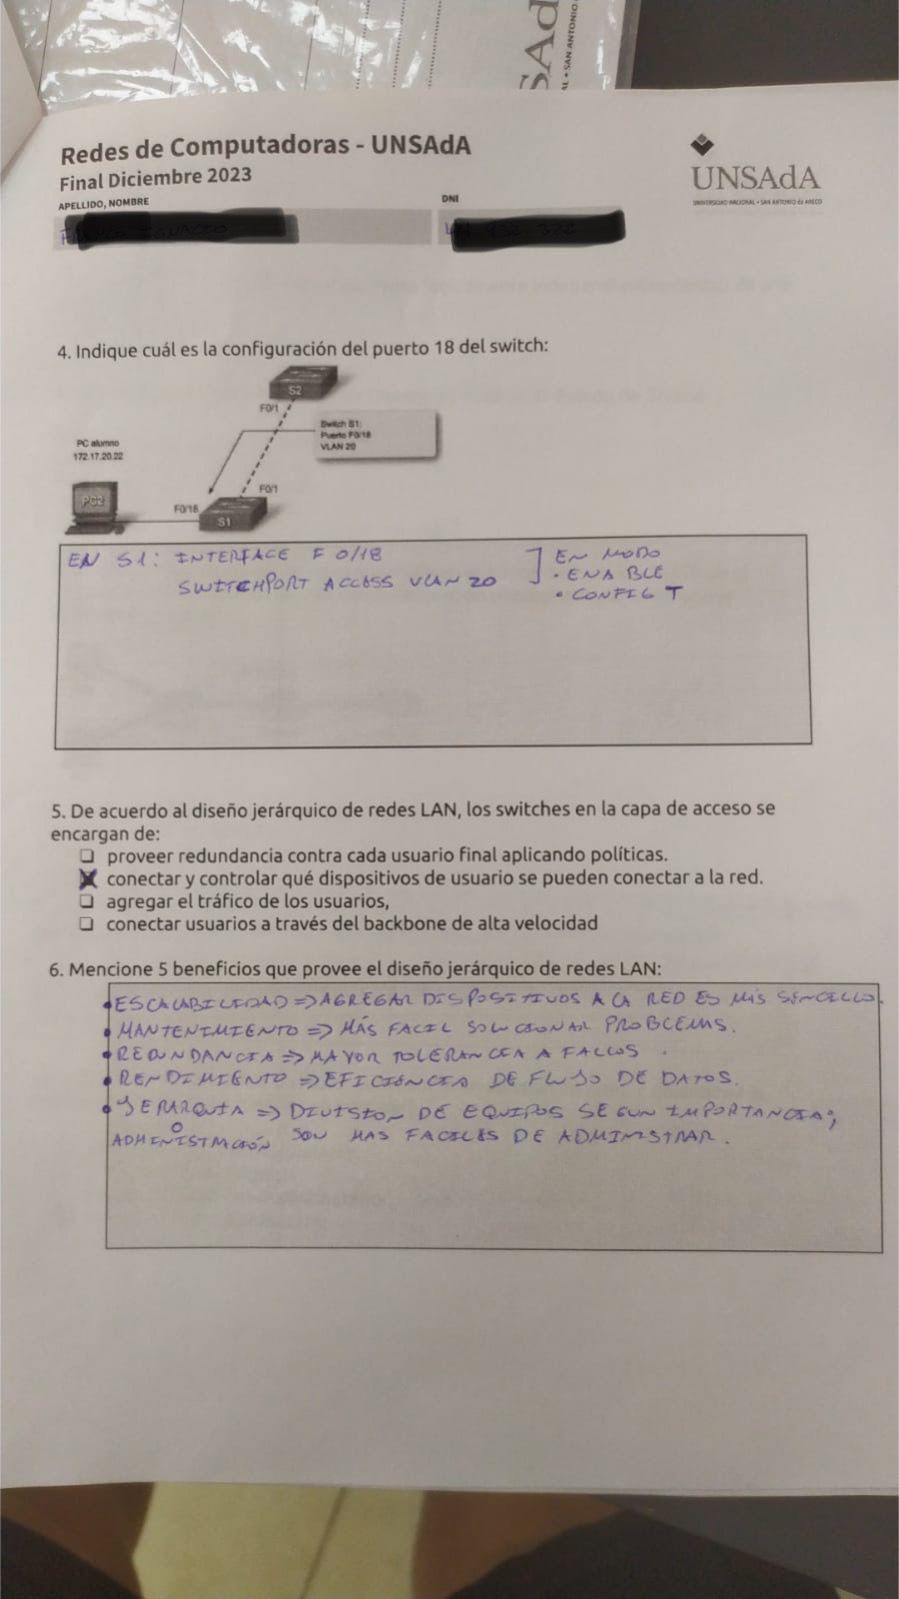 SAd
AL • SAN ANTONIO
Redes de Computadoras - UNSAdA
Final Diciembre 2023
UNSAdA
UNIVERSIDAD NACIONAL • SAN ANTONIO de ARECO
APELLIDO, NOMBRE
DNI
4. Indique cuál es la configuración del puerto 18 del switch:
S2
F0/1
Switch S1:
Puerto F0/18
VLAN 20
PC alumno
172.17.20.22
PC2
F0/18
F0/1
S1
EN S1: INTERFACE F 0/18
SWITCHPORT ACCESS VLAN 20
] EN MODO
• ENABLE
• CONFIG T
5. De acuerdo al diseño jerárquico de redes LAN, los switches en la capa de acceso se
encargan de:
❏ proveer redundancia contra cada usuario final aplicando políticas.
☒ conectar y controlar qué dispositivos de usuario se pueden conectar a la red.
❏ agregar el tráfico de los usuarios,
❏ conectar usuarios a través del backbone de alta velocidad
6. Mencione 5 beneficios que provee el diseño jerárquico de redes LAN:
• ESCALABILIDAD => AGREGAR DISPOSITIVOS A LA RED ES MÁS SENCILLO.
• MANTENIMIENTO => MÁS FACIL SOLUCIONAR PROBLEMAS.
• REDUNDANCIA => MAYOR TOLERANCIA A FALLOS.
• RENDIMIENTO => EFICIENCIA DE FLUJO DE DATOS.
• JERARQUIA => DIVISION DE EQUIPOS SEGUN IMPORTANCIA;
O
ADMINISTRACIÓN SON MAS FACILES DE ADMINISTRAR.